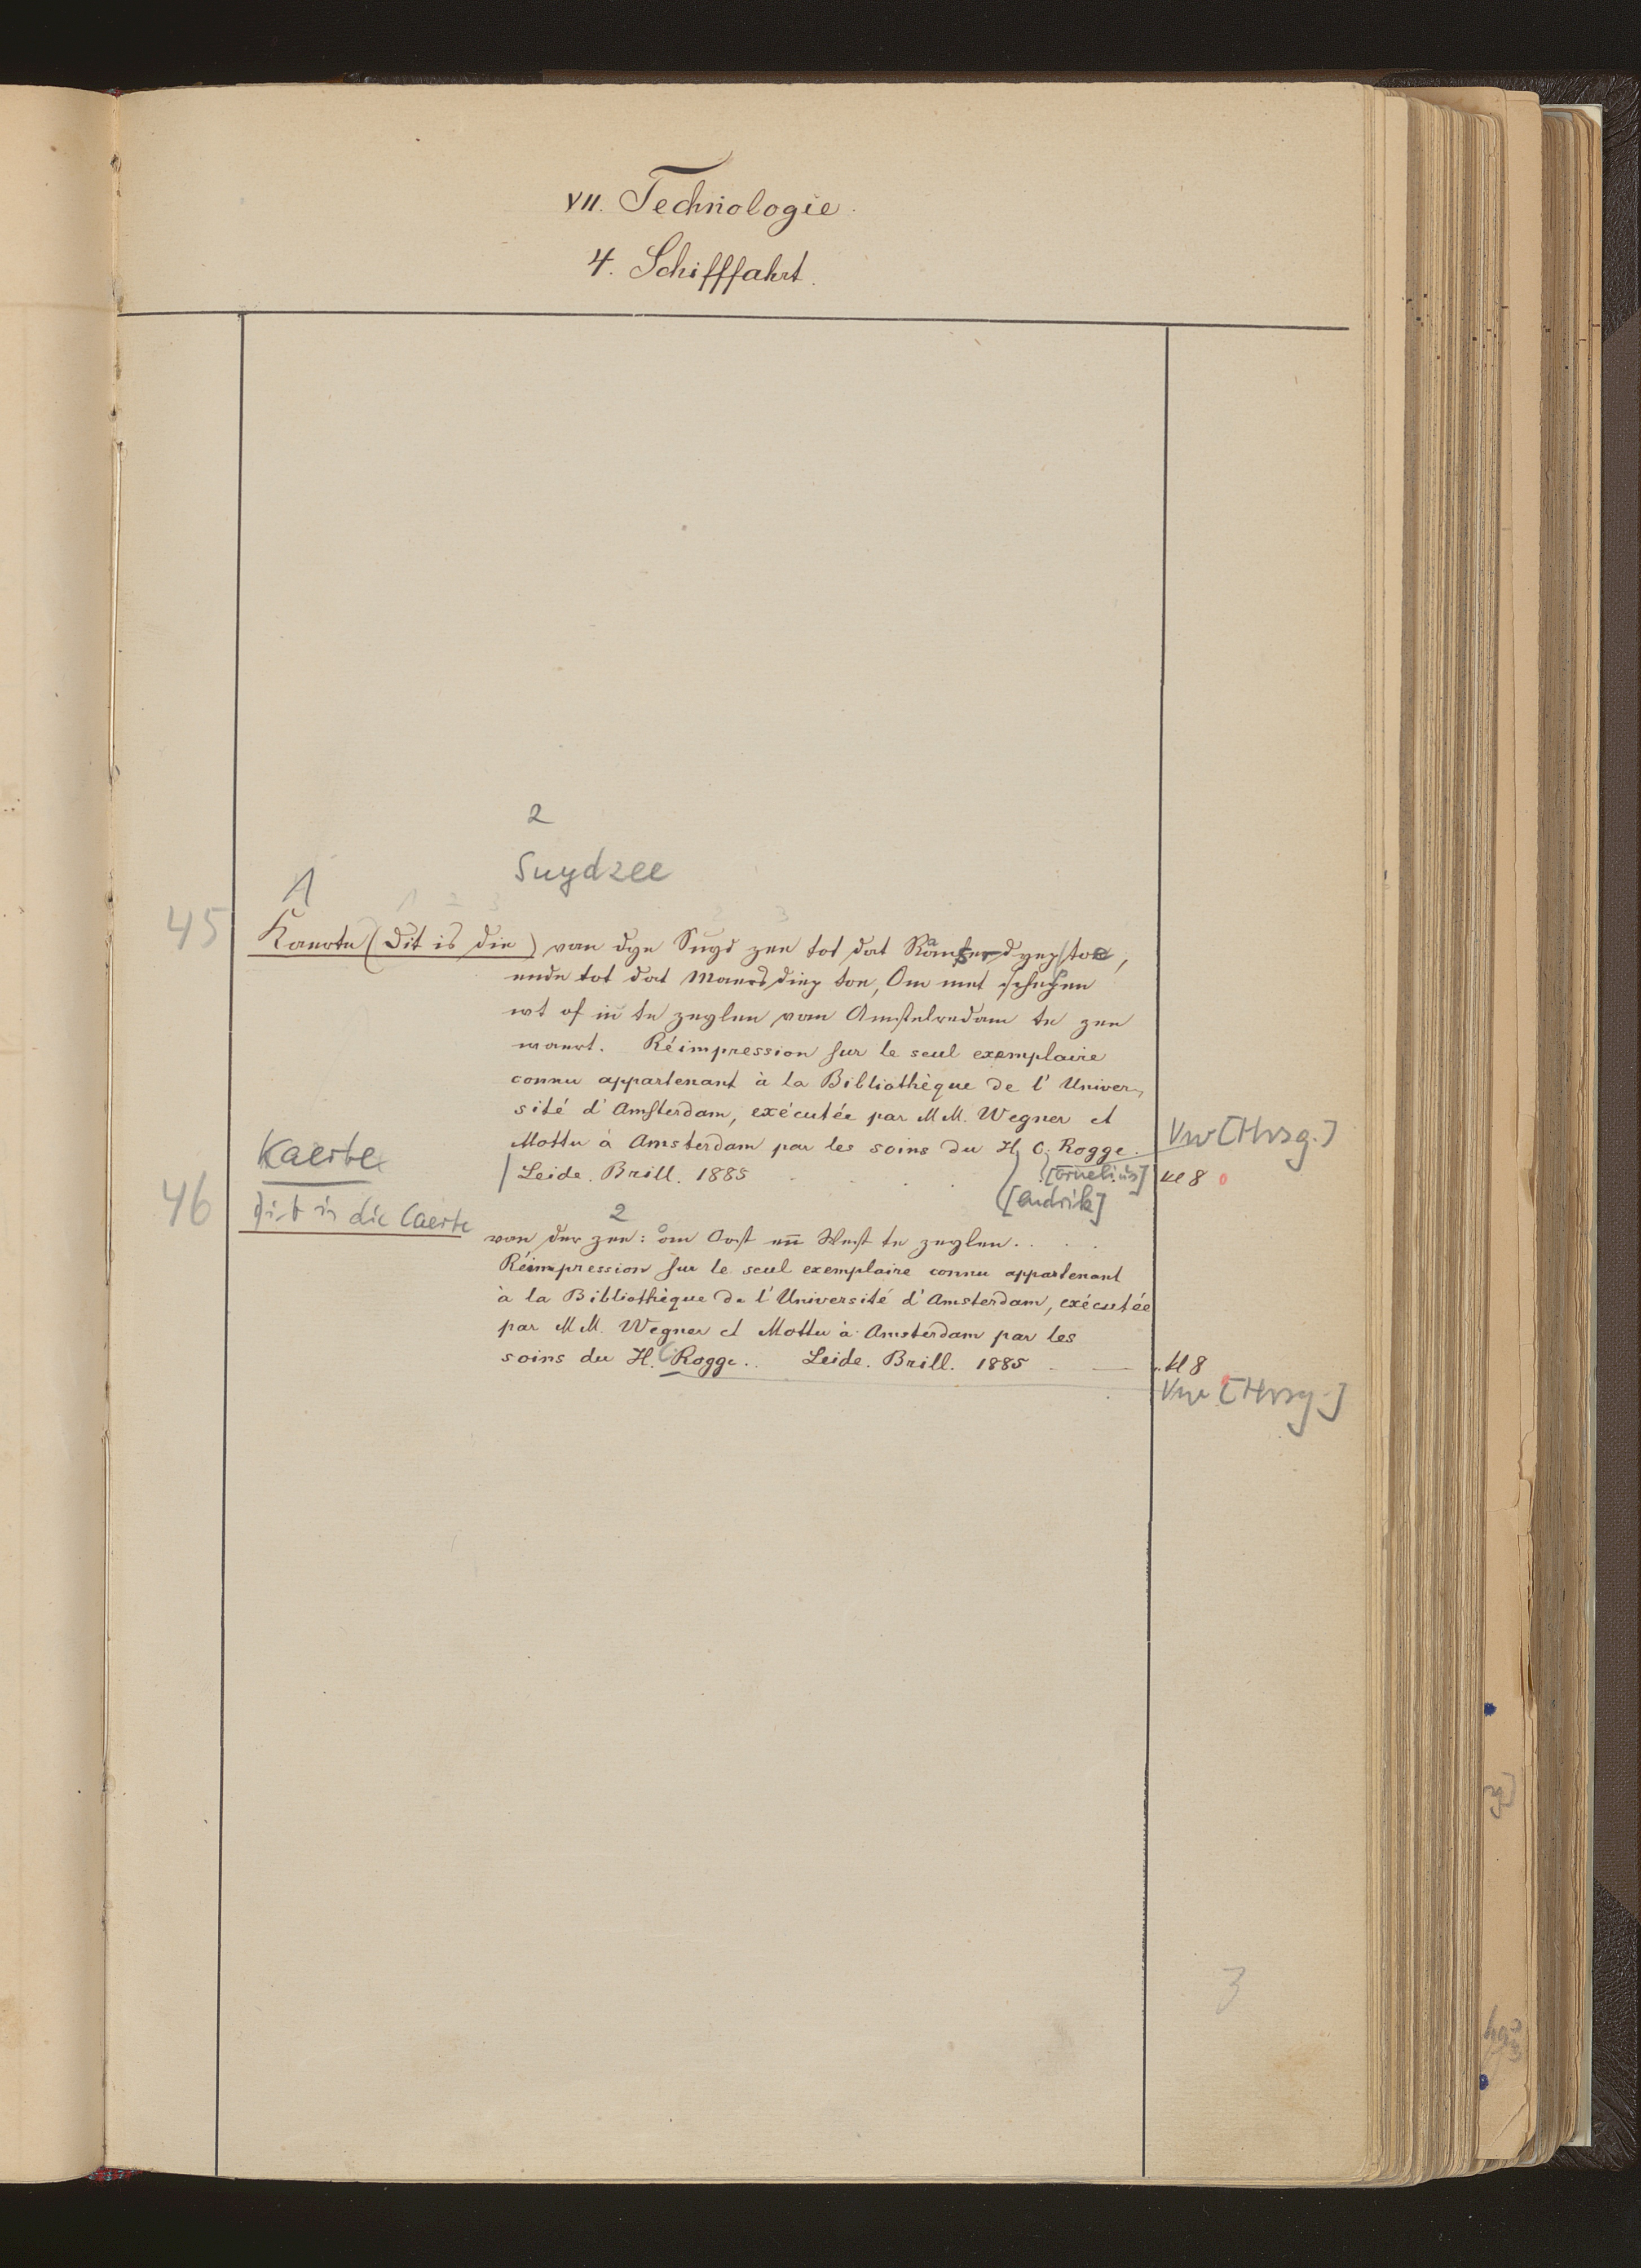 VII. Technologie.
4. Schifffahrt.
2
Suydzee
1
1 2 3 2 3
45 Kaerte (Dit is die) van dye Suyd zee tot dat dyep toe,
ende tot dat Maersdiep toe, Om met schepen
wt of in te zeylen van Amstelredam te zee
waert. Réimpression sur le seul exemplaire
connu appartenant à la Bibliothèque de l'Univer-
sité d'Amsterdam, exécutée par MM. Wegner et
Mottu à Amsterdam par les soins du H. C. Rogge. Vw [Hrsg.]
Leide. Brill. 1885 [ornelius] Kl 8
[endrik]
Kaerte
46 Dit is die Caerte
2
van der zee: om Oost en West te zeylen. . . .
Réimpression sur le seul exemplaire connu appartenant
à la Bibliothèque de l'Université d'Amsterdam, exécutée
par MM. Wegner et Mottu à Amsterdam par les
soins du H. C. Rogge. . Leide. Brill. 1885 Kl 8
Vw [Hrsg.]
3